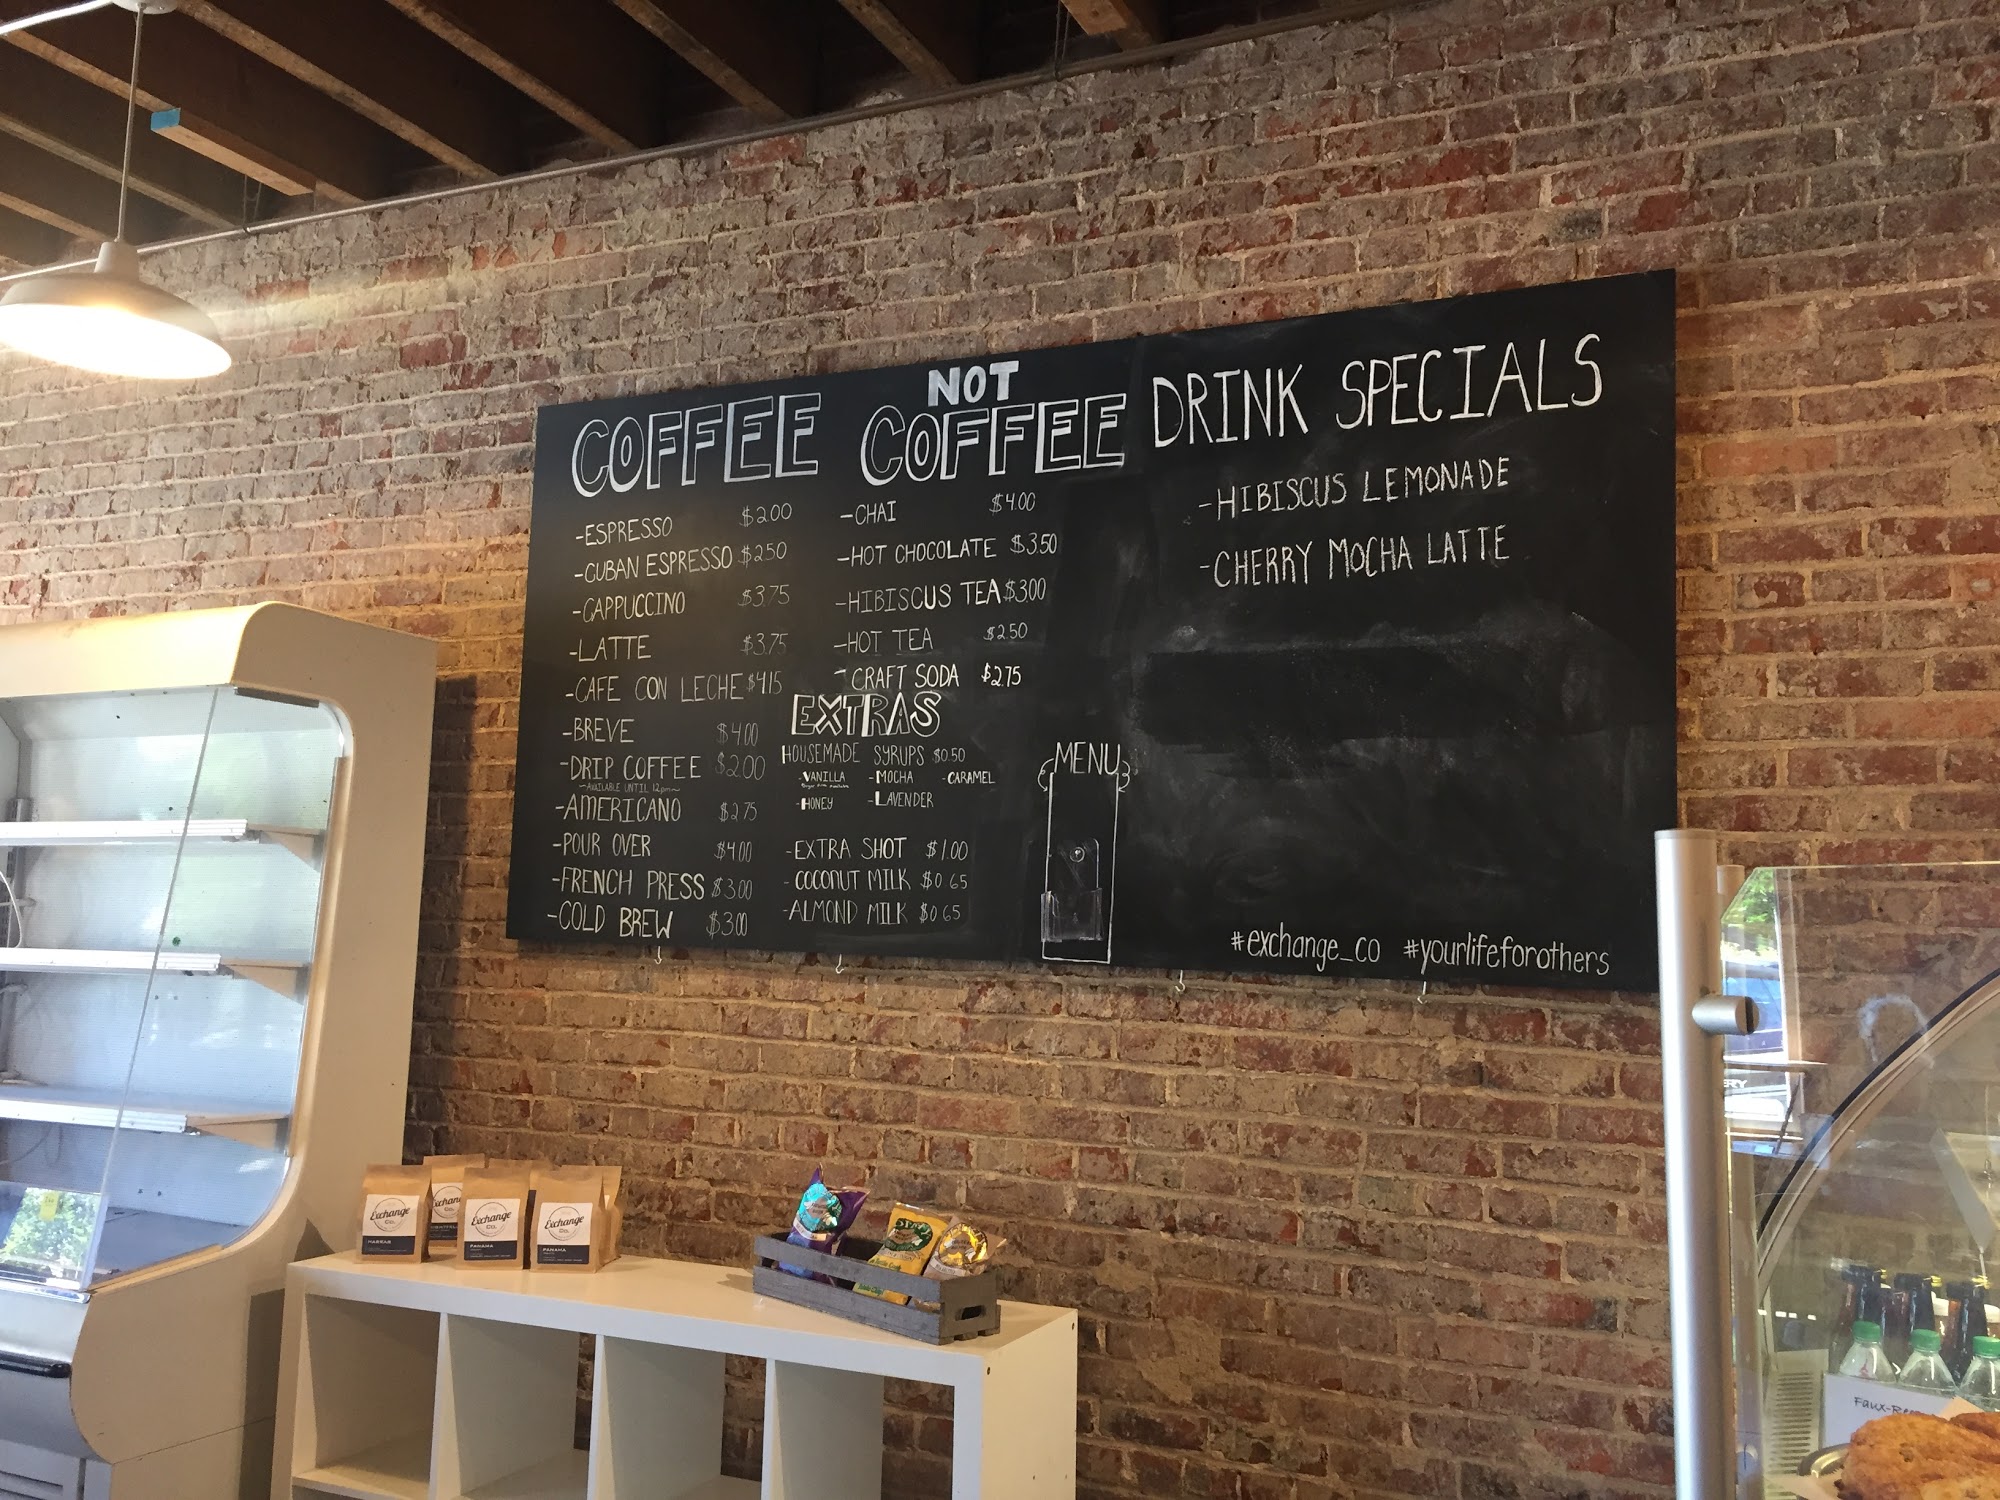 COFFEE
-ESPRESSO $2.00
-CUBAN ESPRESSO $2.50
-CAPPUCCINO $3.75
-LATTE $3.75
-CAFE CON LECHE $4.15
-BREVE $4.00
-DRIP COFFEE $2.00
~AVAILABLE UNTIL 12pm~
-AMERICANO $2.75
-POUR OVER $4.00
-FRENCH PRESS $3.00
-COLD BREW $3.00
NOT
COFFEE
-CHAI $4.00
-HOT CHOCOLATE $3.50
-HIBISCUS TEA $3.00
-HOT TEA $2.50
-CRAFT SODA $2.75
EXTRAS
HOUSEMADE SYRUPS $0.50
-VANILLA -MOCHA -CARAMEL
-HONEY -LAVENDER
-EXTRA SHOT $1.00
-COCONUT MILK $0.65
-ALMOND MILK $0.65
MENU
DRINK SPECIALS
-HIBISCUS LEMONADE
-CHERRY MOCHA LATTE
#exchange_co #yourlifeforothers
Exchange
Co.
Exchange
Co.
PANAMA
Exchange
Co.
PANAMA